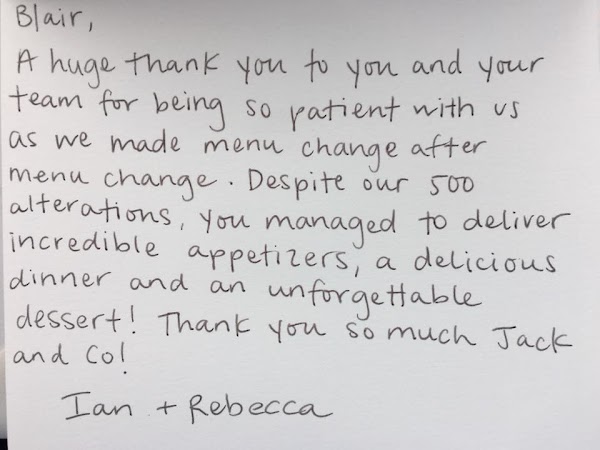 Blair,
A huge thank you to you and your
team for being so patient with us
as we made menu change after
menu change. Despite our 500
alterations, you managed to deliver
incredible appetizers, a delicious
dinner and an unforgettable
dessert! Thank you so much Jack
and Co!
Ian + Rebecca